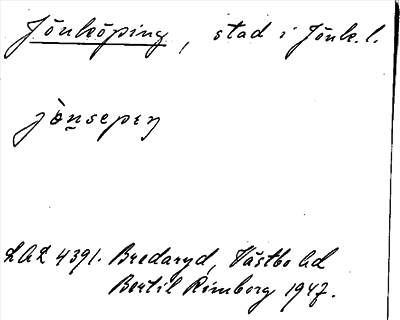 Jönköping, stad i Jönk. l.
jònsepıŋ
LAL 4391. Bredaryd, Västbo hd
Bertil Rimborg 1947.